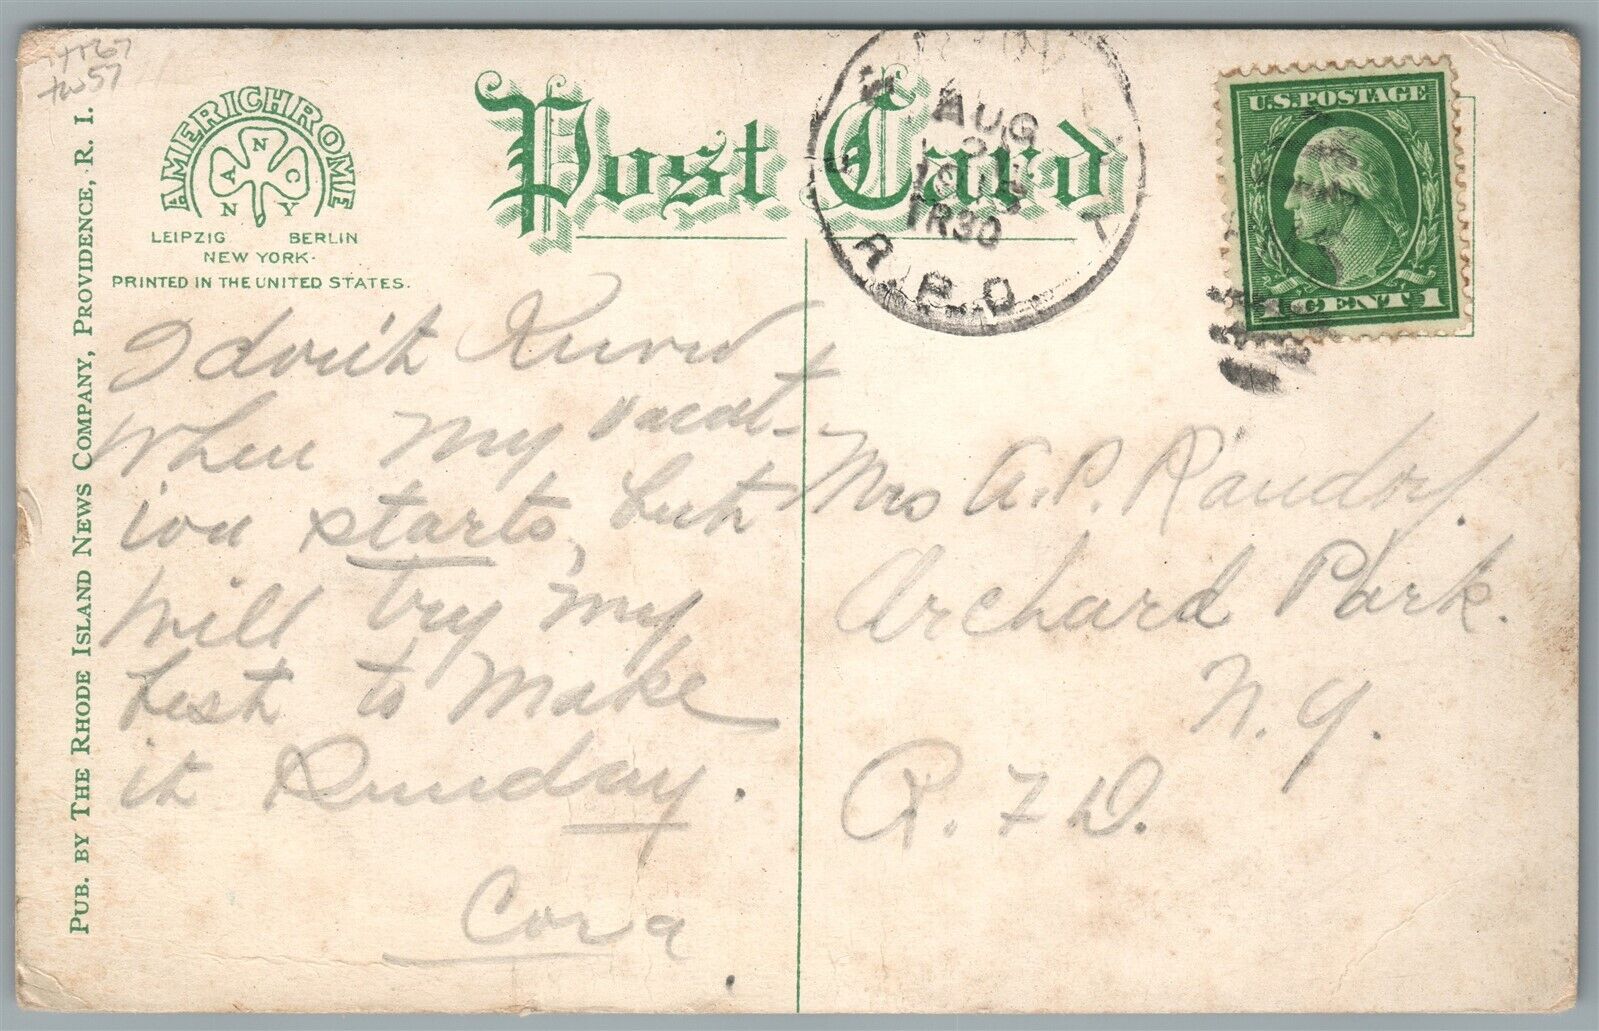 AMERICHROME
A N C
N Y
LEIPZIG BERLIN
NEW YORK.
PRINTED IN THE UNITED STATES.
Post Card
AUG
TR30
R.P.O.
U.S. POSTAGE
1 CENT 1
PUB. BY THE RHODE ISLAND NEWS COMPANY, PROVIDENCE, R. I.
I don't Know
When my vacat-
ion starts, but
Will try my
best to make
it Sunday.
Cora
Mrs A. P.
Orchard Park.
N. Y.
R. F. D.